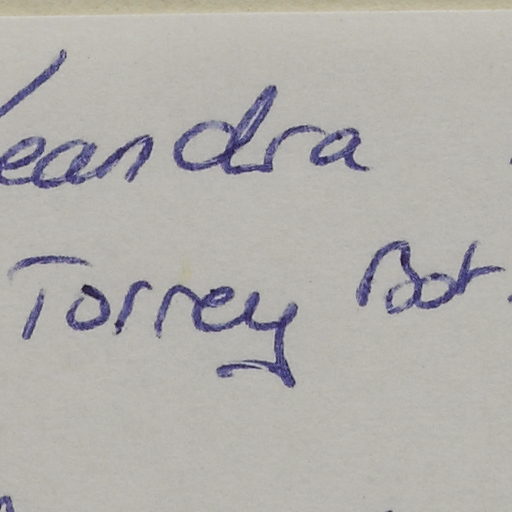 Leandra
Torrey Bot.